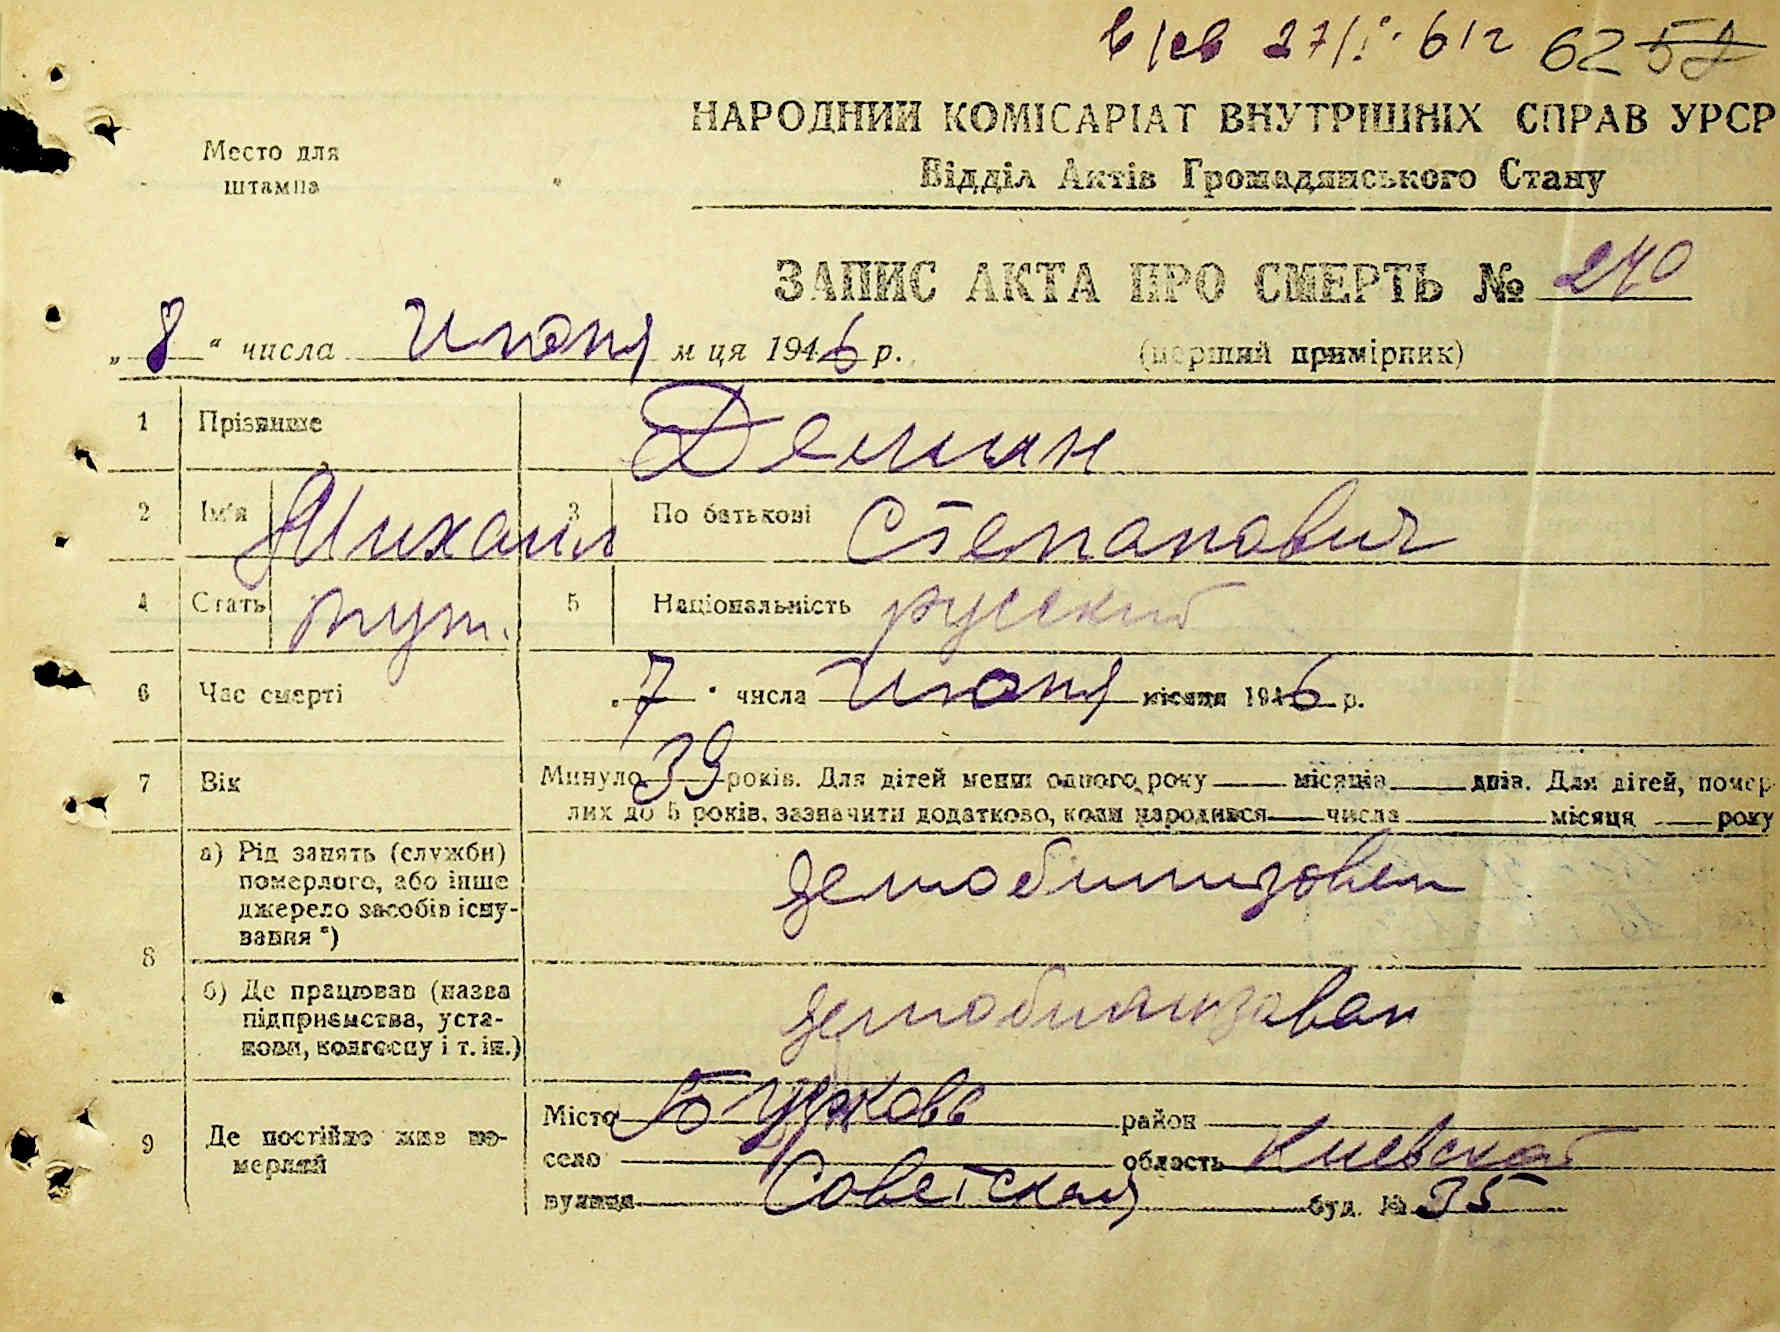 62 58
НАРОДНИЙ КОМІСАРІАТ ВНУТРІШНІХ СПРАВ УРСР
Место для штампа
Відділ Актів Громадянського Стану
ЗАПИС АКТА ПРО СМЕРТЬ № 240
„8“ числа Июня м ця 1946 р.
(перший примірник)
1 Прізвище Демин
2 Ім'я Михаил 3 По батькові Степанович
4 Стать муж. 5 Національність русский
6 Час смерті „7“ числа Июня місяця 1946 р.
7 Вік Минуло 39 років. Для дітей менш одного року місяців днів. Для дітей, помер-
лих до 5 років, зазначити додатково, коли народився числа місяця року
8 а) Рід занять (служби)
померлого, або інше
джерело засобів існу-
вання *)
демобилизован
б) Де працював (назва
підприємства, уста-
нови, колгоспу і т. ін.)
демобилизован
9 Де постійно жив по-
мерлий
Місто район
село область Киевская
вулиця Советская буд. № 35